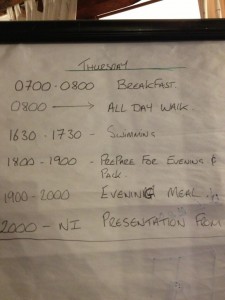 THURSDAY
0700 - 0800 BREAKFAST.
0800 → ALL DAY WALK.
1630 - 1730 - SWIMMING
1800 - 1900 - PREPARE FOR EVENING &
PACK.
1900 - 2000 EVENING MEAL.
2000 - NI PRESENTATION FROM